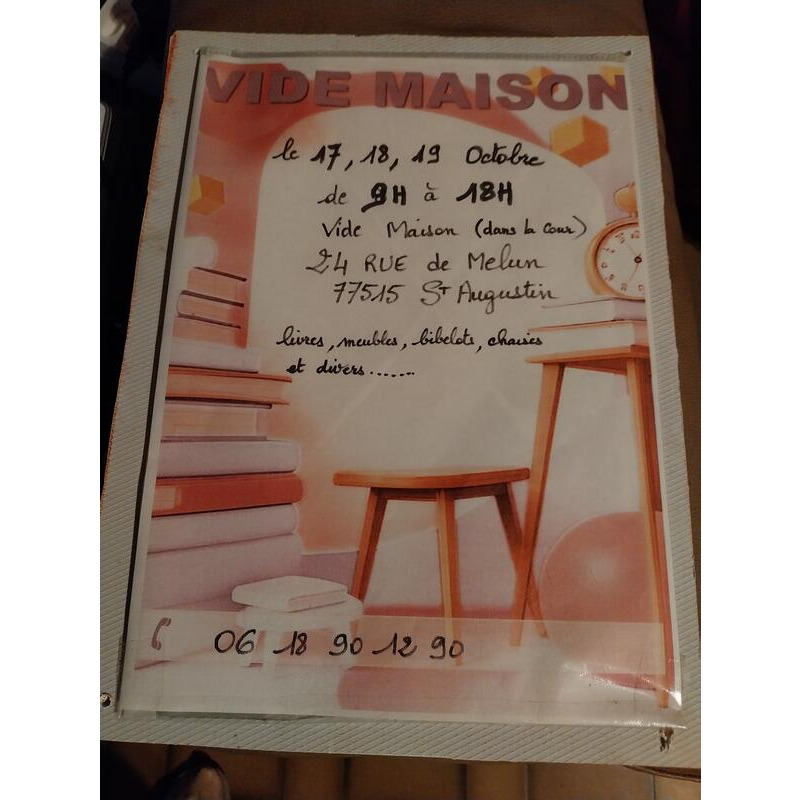 VIDE MAISON
le 17, 18, 19 Octobre
de 9H à 18H
Vide Maison (dans la cour)
24 RUE de Melun
77515 St Augustin
livres, meubles, bibelots, chaises
et divers.......
06 18 90 12 90